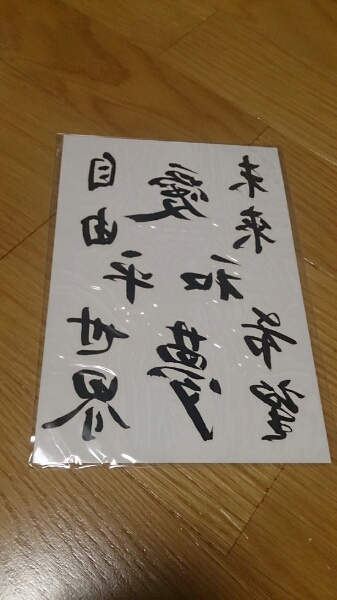 未来
希望
愛
平和
夢
自由
世界